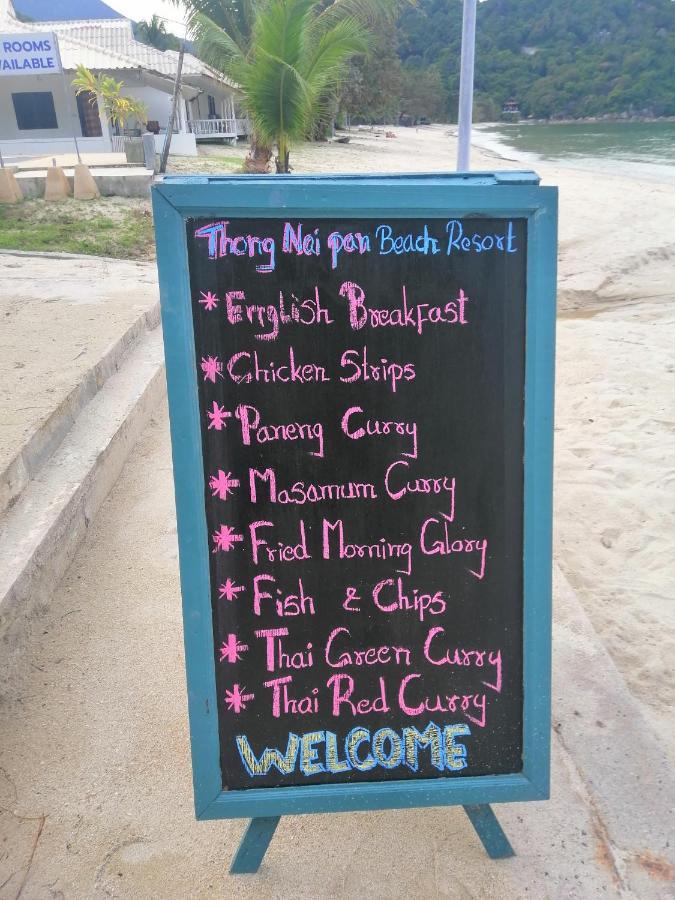 ROOMS
AVAILABLE
Thong Nai pan Beach Resort
* English Breakfast
* Chicken Strips
* Paneng Curry
* Masamum Curry
* Fried Morning Glory
* Fish & Chips
* Thai Green Curry
* Thai Red Curry
WELCOME